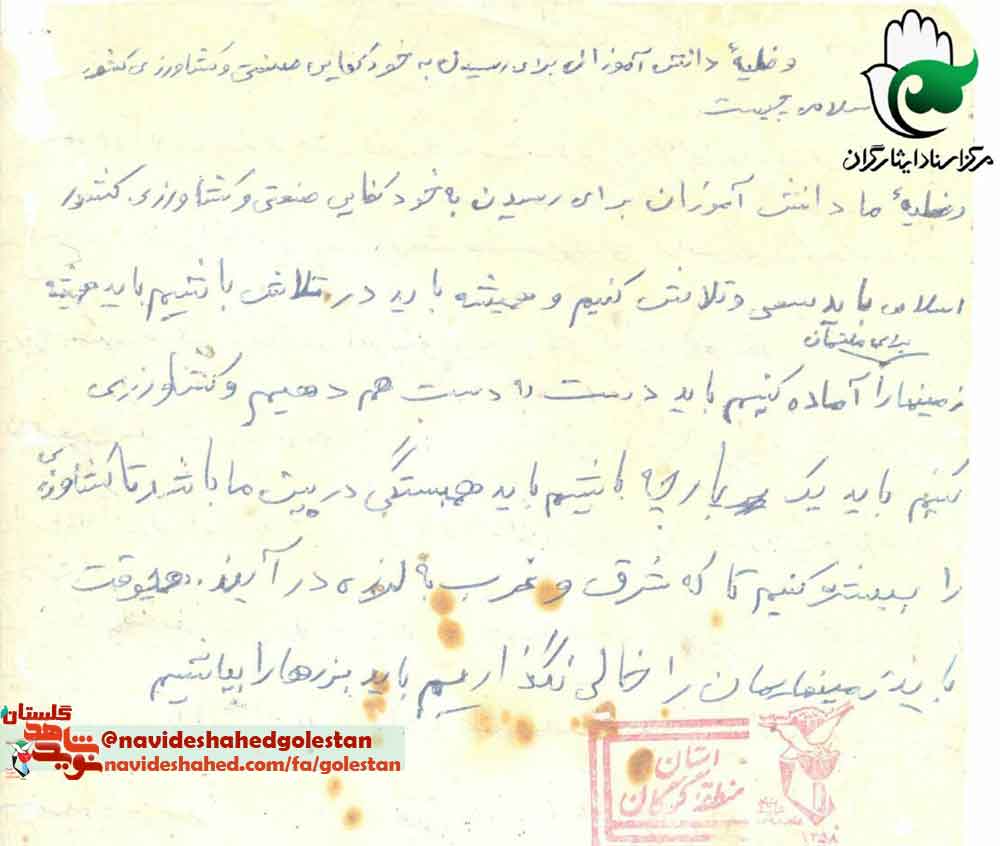 وظیفهٔ دانش آموزان برای رسیدن به خودکفایی صنعتی و کشاورزی کشور
سلامی چیست
مرکز اسناد ایثارگران
وظیفهٔ ما دانش آموزان برای رسیدن به خودکفایی صنعتی و کشاورزی کشور
اسلامی باید سعی و تلاش کنیم و همیشه باید در تلاش باشیم باید همیشه
برای ملتمان
زمینها را آماده کنیم باید دست به دست هم دهیم و کشاورزی
کنیم باید یک پارچه باشیم باید همبستگی در بین ما باشد تا کشاورزی
را بیشتر کنیم تا که شرق و غرب به لرزه در آید. هیچوقت
باید زمینهایمان را خالی نگذاریم باید بذرها را بپاشیم
گلستان
نوید شاهد
@navideshahedgolestan
navideshahed.com/fa/golestan
استان
منطقه گرگان
۱۳۵۸